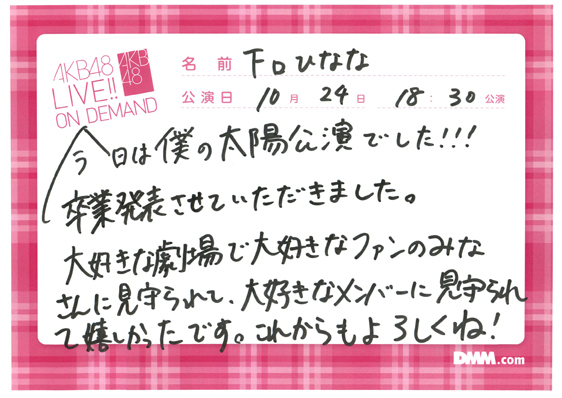 AKB48
LIVE!!
ON DEMAND
AKB
48
名 前 下口ひなな
公演日 10月 24日 18:30公演
今日は僕の太陽公演でした!!!
卒業発表させていただきました。
大好きな劇場で大好きなファンのみな
さんに見守られて、大好きなメンバーに見守られ
て嬉しかったです。これからもよろしくね!
DMM.com